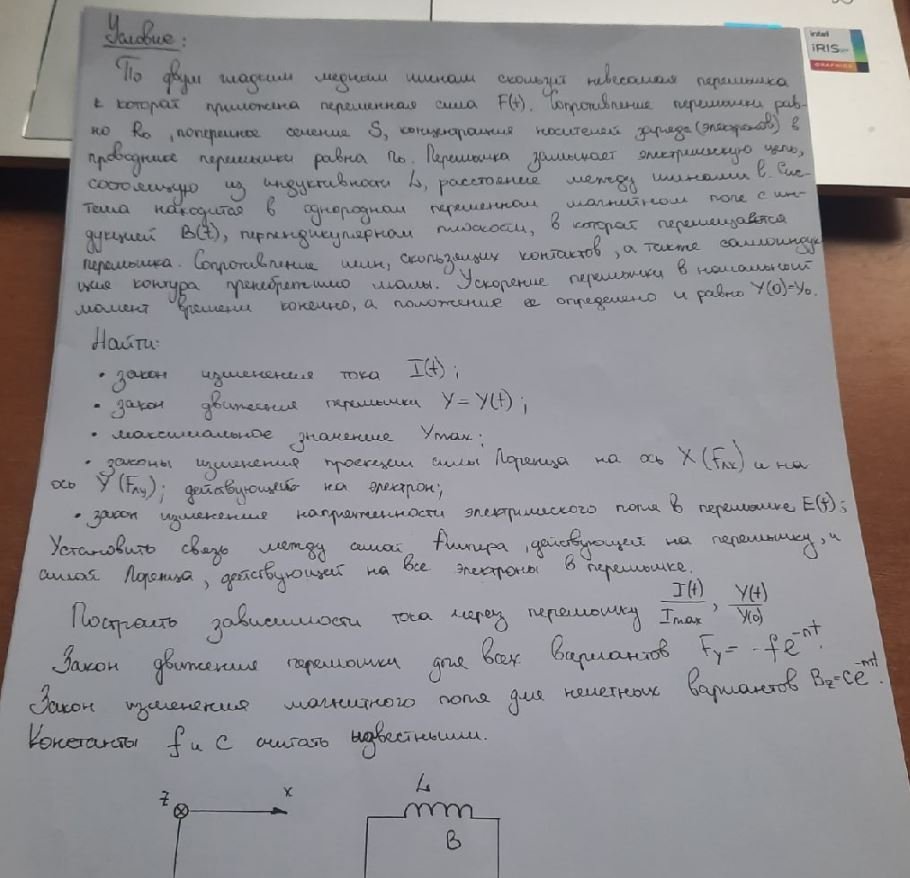 Условие:
По двум гладким медным шинам скользит невесомая перемычка
к которой приложена переменная сила F(t). Сопротивление перемычки рав-
но R₀, поперечное сечение S, концентрация носителей заряда (электронов) в
проводнике перемычки равна n₀. Перемычка замыкает электрическую цепь,
состоящую из индуктивности L, расстояние между шинами в. Сис-
тема находится в однородном переменном магнитном поле с ин-
дукцией B(t), перпендикулярном плоскости, в которой перемещается
перемычка. Сопротивление шин, скользящих контактов, а также самоиндук
ция контура пренебрежимо малы. Ускорение перемычки в начальный
момент времени конечно, а положение ее определено и равно Y(0)=Y₀.
Найти:
• закон изменения тока I(t);
• закон движения перемычки Y=Y(t);
• максимальное значение Ymax;
• законы изменения проекции силы Лоренца на ось X(Fлx) и на
ось Y(Fлy); действующей на электрон;
• закон изменения напряженности электрического поля в перемычке E(t);
Установить связь между силой Ампера, действующей на перемычку, и
силой Лоренца, действующей на все электроны в перемычке.
Построить зависимости тока через перемычку I(t)/Imax, Y(t)/Y(0)
Закон движения перемычки для всех вариантов Fy=-fe^-nt.
Закон изменения магнитного поля для нечетных вариантов Bz=ce^-mt.
Константы f и c считать известными.
z x L
B
intel
iRIS xe
GRAPHICS